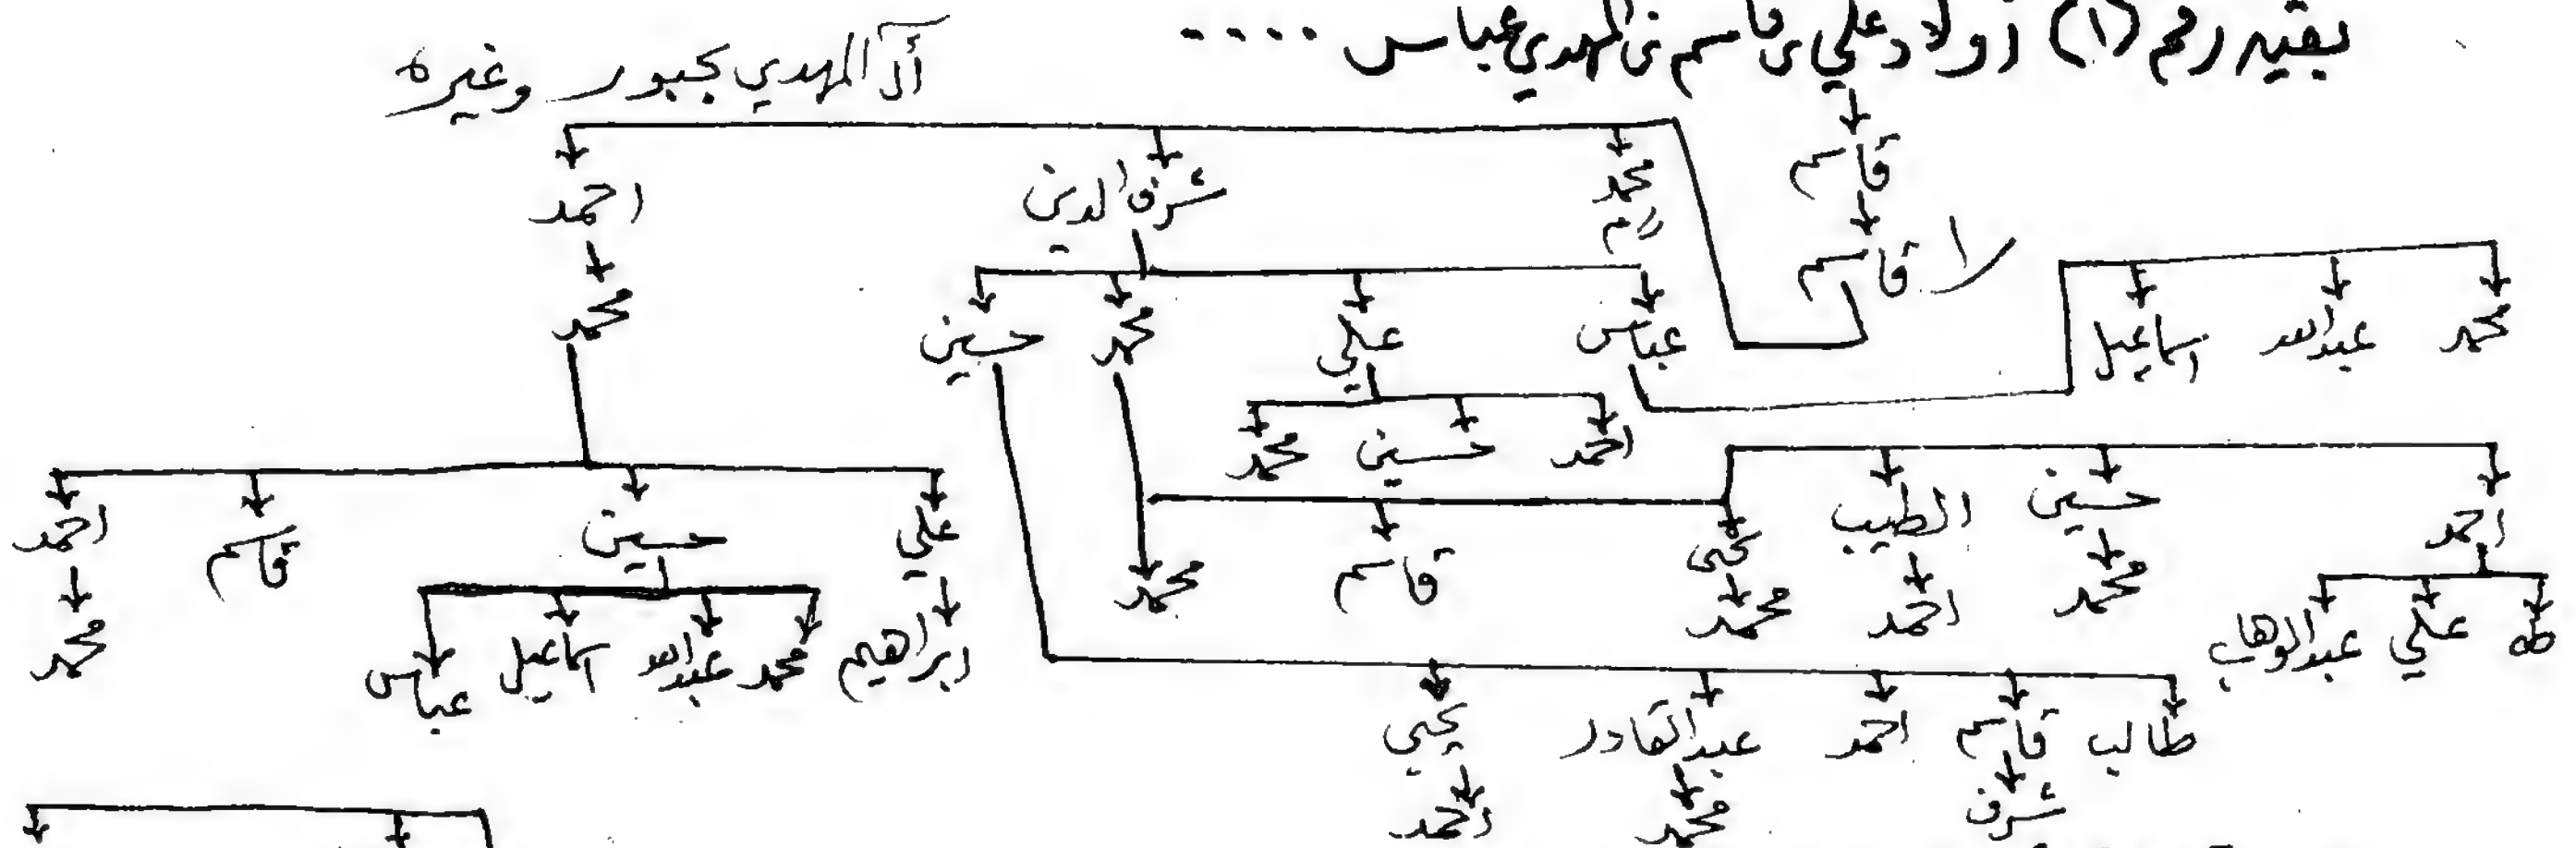 بقيه رقم (١) أولاد علي بن قاسم بن المهدي عباس ....
آل المهدي بجبور وغيره
قاسم
محمد شرف الدين احمد
لا قاسم
محمد عبدالله اسماعيل
عباس علي محمد حسين محمد
احمد حسين محمد
احمد حسين الطيب يحيى قاسم محمد
علي حسين قاسم احمد
طه علي عبدالوهاب محمد احمد محمد
ابراهيم محمد عبدالله اسماعيل عباس محمد
طالب قاسم احمد عبدالقادر يحيى
شرف محمد احمد